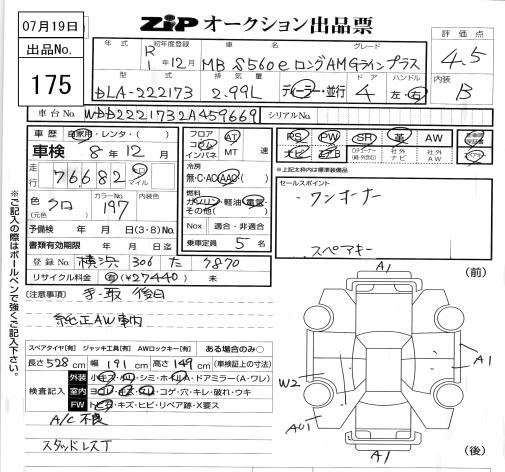 07月19日
出品No.
175
ZiP オークション出品票
年式
初年度登録
車名
グレード
R1年12月
MB S560e ロング AMGラインプラス
評価点
4.5
内装
B
型式
排気量
ドア
ハンドル
DLA-222173
2.99L
ディーラー・並行
4
左・右
車台No
WDD2221732A459669
シリアルNo.
車歴
自家用・レンタ・( )
車検
8年12月
走行
76682
キロ
マイル
色
(元色)
クロ
カラーNo
197
予備検 年 月 日(3・8)No.
書類有効期限 年 月 日
登録No.
横浜 306 た 7870
リサイクル料金 有(¥27440) 未
フロア
コラム
インパネ
AT
MT
速
冷房
無・C・AC・AAC
燃料
ガソリン・軽油・電気・
その他( )
Nox 適合・非適合
乗車定員 5 名
PS PW SR 革 AW
ナビ エアB 社外ナビ 社外AW
※上記太枠内は標準装備品
セールスポイント
ワンオーナー
スペアキー
(注意事項)
手・取 後日
純正AW車内
※ご記入の際はボールペンで強くご記入下さい。
スペアタイヤ[有] ジャッキ工具[有] AWロックキー[有] ある場合のみ○
長さ528cm 幅191cm 高さ149cm(車検証上の寸法)
検査記入
外装 小キズ・小凹・シミ・ホイルA・ドアミラー(A・ワレ)
室内 ヨゴレ・キズ・スレ・コゲ・穴・キレ・破れ・ウキ
FW トビ石・キズ・ヒビ・リペア跡・X要ス
A/C 不良
スタッドレスT
A1
(前)
A1
W2
AU1
A1
(後)